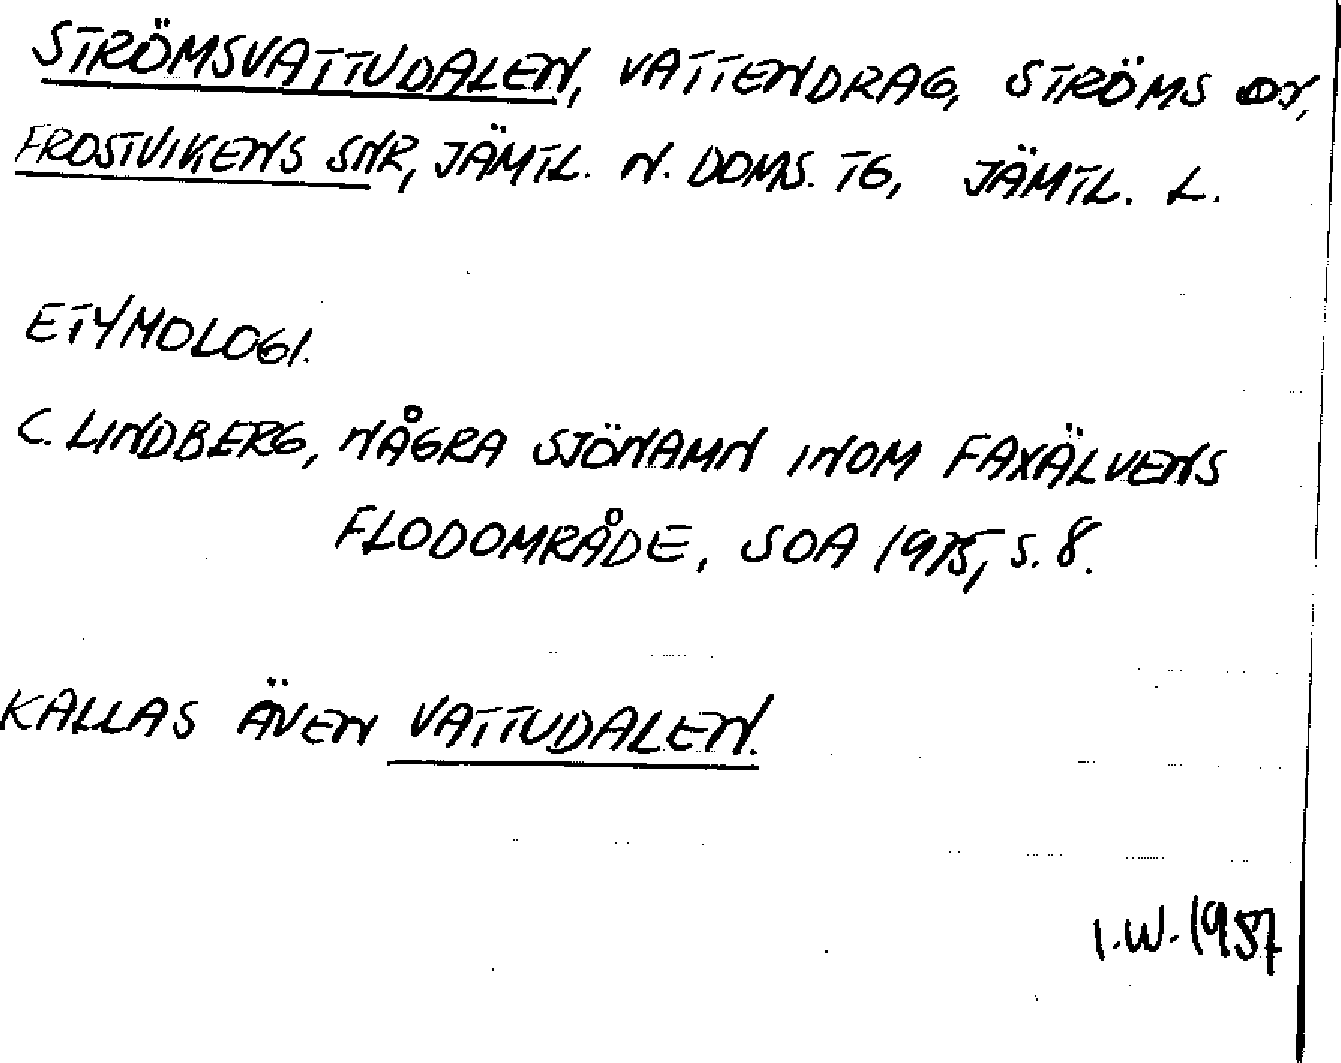 STRÖMSVATTUDALEN, VATTENDRAG, STRÖMS
FROSTVIKENS SNR, JÄMTL. N. DOMS. TG, JÄMTL. L.
ETYMOLOGI.
C. LINDBERG, NÅGRA SJÖNAMN INOM FAXÄLVENS
FLODOMRÅDE, SOA 1975, S. 8.
KALLAS ÄVEN VATTUDALEN.
I.W. 1987